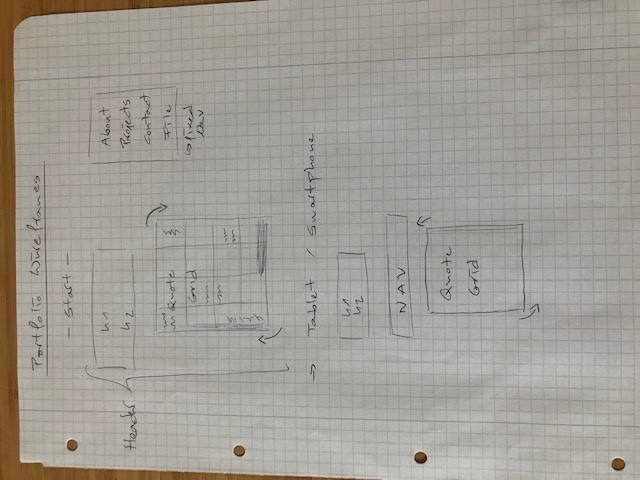 Portfolio Wireframes
- Start -
Header
h1
h2
About
Projects
Contact
File
→ fixed
Nav
Quote
Grid
→ Tablet / Smartphone
h1
h2
NAV
Quote
Grid